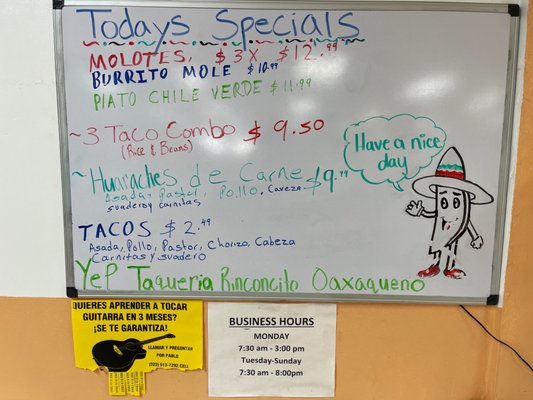 Todays Specials
MOLOTES, $ 3 X $12.99
BURRITO MOLE $ 10.99
PLATO CHILE VERDE $ 11.99
~3 Taco Combo $ 9.50
(Rice & Beans)
~Huaraches de Carne $9.99
Asada, Pastor, Pollo, Caveza
suadero y carnitas
Have a nice
day
TACOS $ 2.49
Asada, Pollo, Pastor, Chorizo, Cabeza
Carnitas y suadero
YeP Taqueria Rinconcito Oaxaqueno
QUIERES APRENDER A TOCAR
GUITARRA EN 3 MESES?
¡SE TE GARANTIZA!
LLAMAR Y PREGUNTAR
POR PABLO
BUSINESS HOURS
MONDAY
7:30 am - 3:00 pm
Tuesday-Sunday
7:30 am - 8:00pm